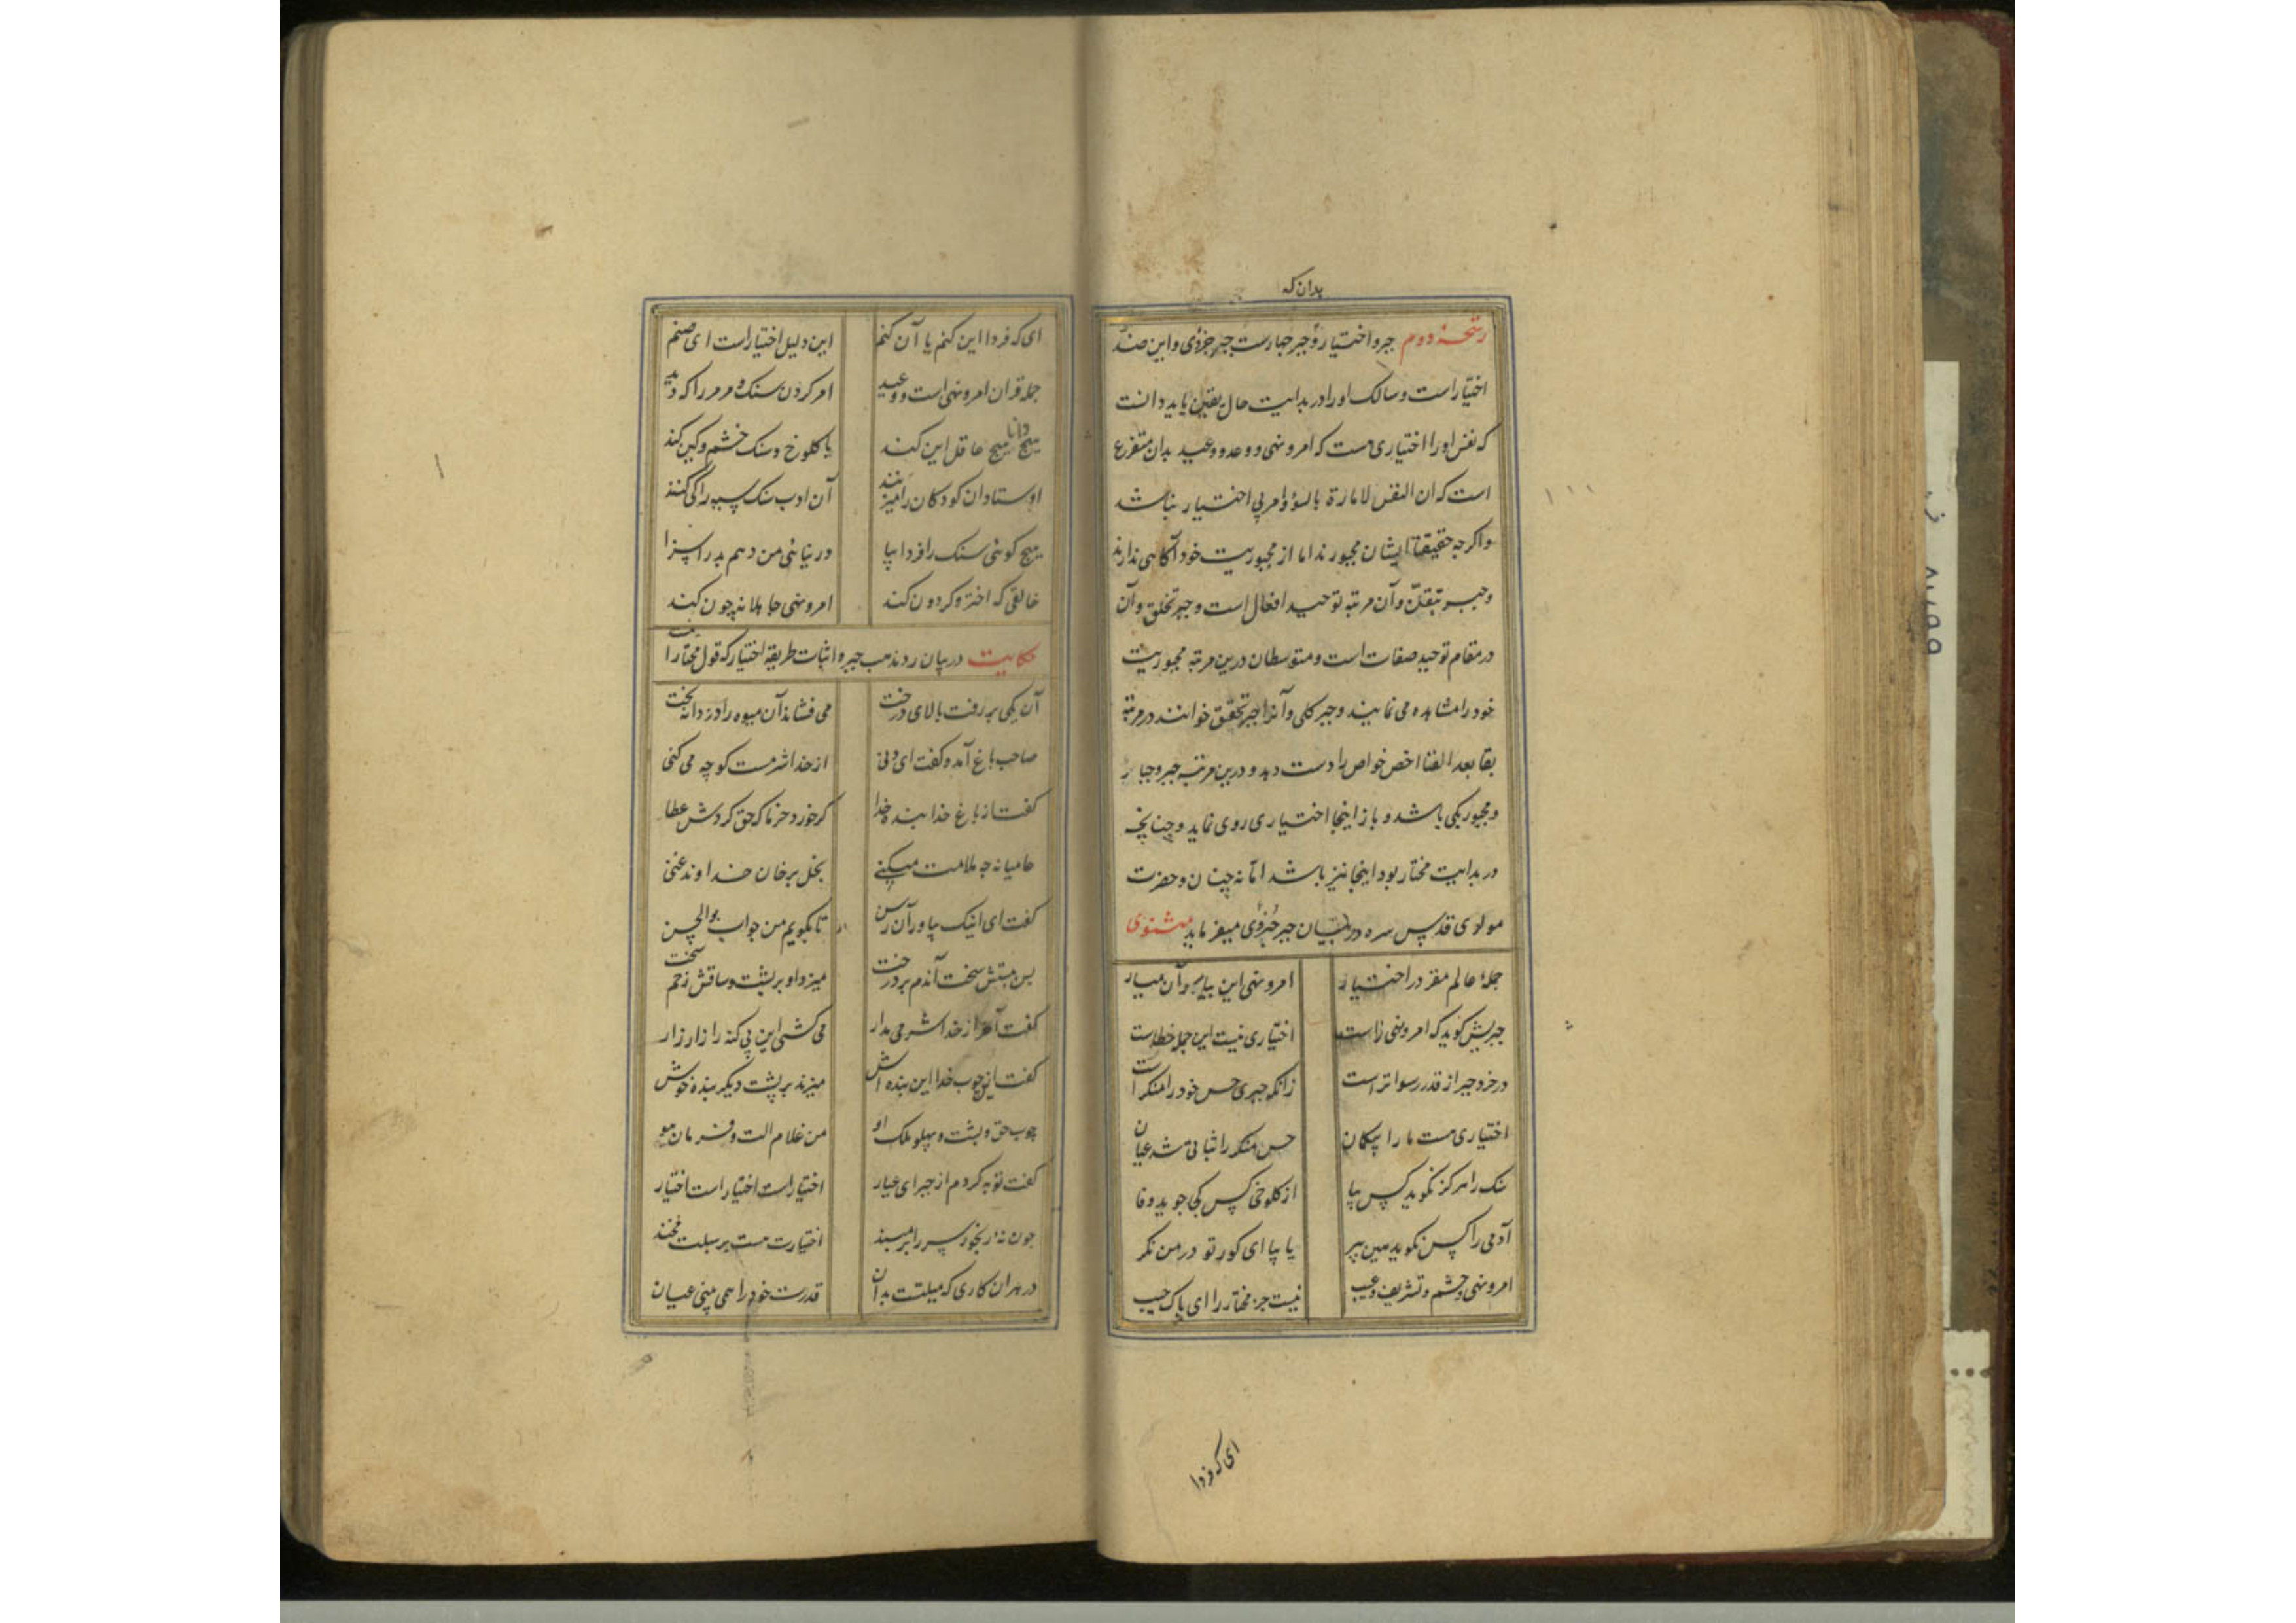 بدان که
رشحهٔ دوم جبر و اختیار و جبر چهارست جبر جزؤی و این ضد
اختیار است و سالک او را در بدایت حال بیقین باید دانست
که نفس او را اختیاری هست که امر و نهی و وعد و وعید بدان متفرع
است که ان النفس لامارة بالسؤ و امر بی اختیار نباشد
و اکرچه حقیقة ایشان مجبورند اما از مجبوریت خود آکاهی ندارند
و جبر و آن مرتبه توحید افعال است و جبر تخلق و آن
در مقام توحید صفات است و متوسطان درین مرتبه مجبوریت
خود را مشاهده می نمایند و جبر کلی و آنرا جبر تحقق خوانند در مرتبهٔ
بقا بعد الفنا اخص خواص را دست دهد و درین مرتبه جبر و جبار
و مجبور یکی باشد و باز اینجا اختیاری روی نماید و چنانچه
در بدایت مختار بود اینجا نیز باشد اما نه چنان و حضرت
مولوی قدس سره در بیان جبر جزؤی میفرماید مثنوی
جملهٔ عالم مقر در اختیار امر و نهی این بیار و آن میار
جبریش کوید که امر و نهی لاست اختیاری نیست این جمله خطاست
در خرد جبر از قدر رسواتر است زانکه جبری حس خود را منکر است
اختیاری هست ما را بیکمان حس منکر را نتانی شد عیان
سنک را هرکز نکوید کس بیا از کلوخی کس کجا جوید وفا
آدمی را کس نکوید هین بپر یا بیا ای کور تو در من نکر
امر و نهی و خشم و تشریف و عیب نیست جز مختار را ای پاک جیب
ای که فردا
ای که فردا این کنم یا آن کنم این دلیل اختیار است ای صنم
جمله قران امر و نهی است و وعید امر کردن سنک و مرمر را که دید
هیچ دانا هیچ عاقل این کند با کلوخ و سنک خشم و کین کند
اوستادان کودکان را میزنند آن ادب سنک سیه را کی کنند
هیچ کوئی سنک را فردا بیا ور نیائی من دهم بد را سزا
خالقی که اختر و کردون کند امر و نهی جاهلانه چون کند
حکایت در بیان رد مذهب جبر و اثبات طریقهٔ اختیار که قول مختار است
آن یکی بر رفت بالای درخت می فشاند آن میوه را دزدانه لخت
صاحب باغ آمد و کفت ای دنی از خدا شرمت کو چه می کنی
کفت از باغ خدا بنده خدا کر خورد خرما که حق کردش عطا
عامیانه چه ملامت میکنی بخل بر خان خداوند غنی
کفت ای ایبک بیاور آن رسن تا بکویم من جواب بوالحسن
پس ببستش سخت آندم بر درخت میزد او بر پشت و ساقش زخم سخت
کفت آخر از خدا شرمی بدار می کشی این بی کنه را زار زار
کفت از چوب خدا این بنده اش میزند بر پشت دیکر بنده خوش
چوب حق و پشت و پهلو ملک او من غلام الت و فرمان او
کفت توبه کردم از جبر ای عیار اختیار است اختیار است اختیار
چون نهٔ رنجور سر را بر مبند اختیارت هست بر سبلت مخند
در هر ان کاری که میلتت بدان قدرت خود را همی بینی عیان